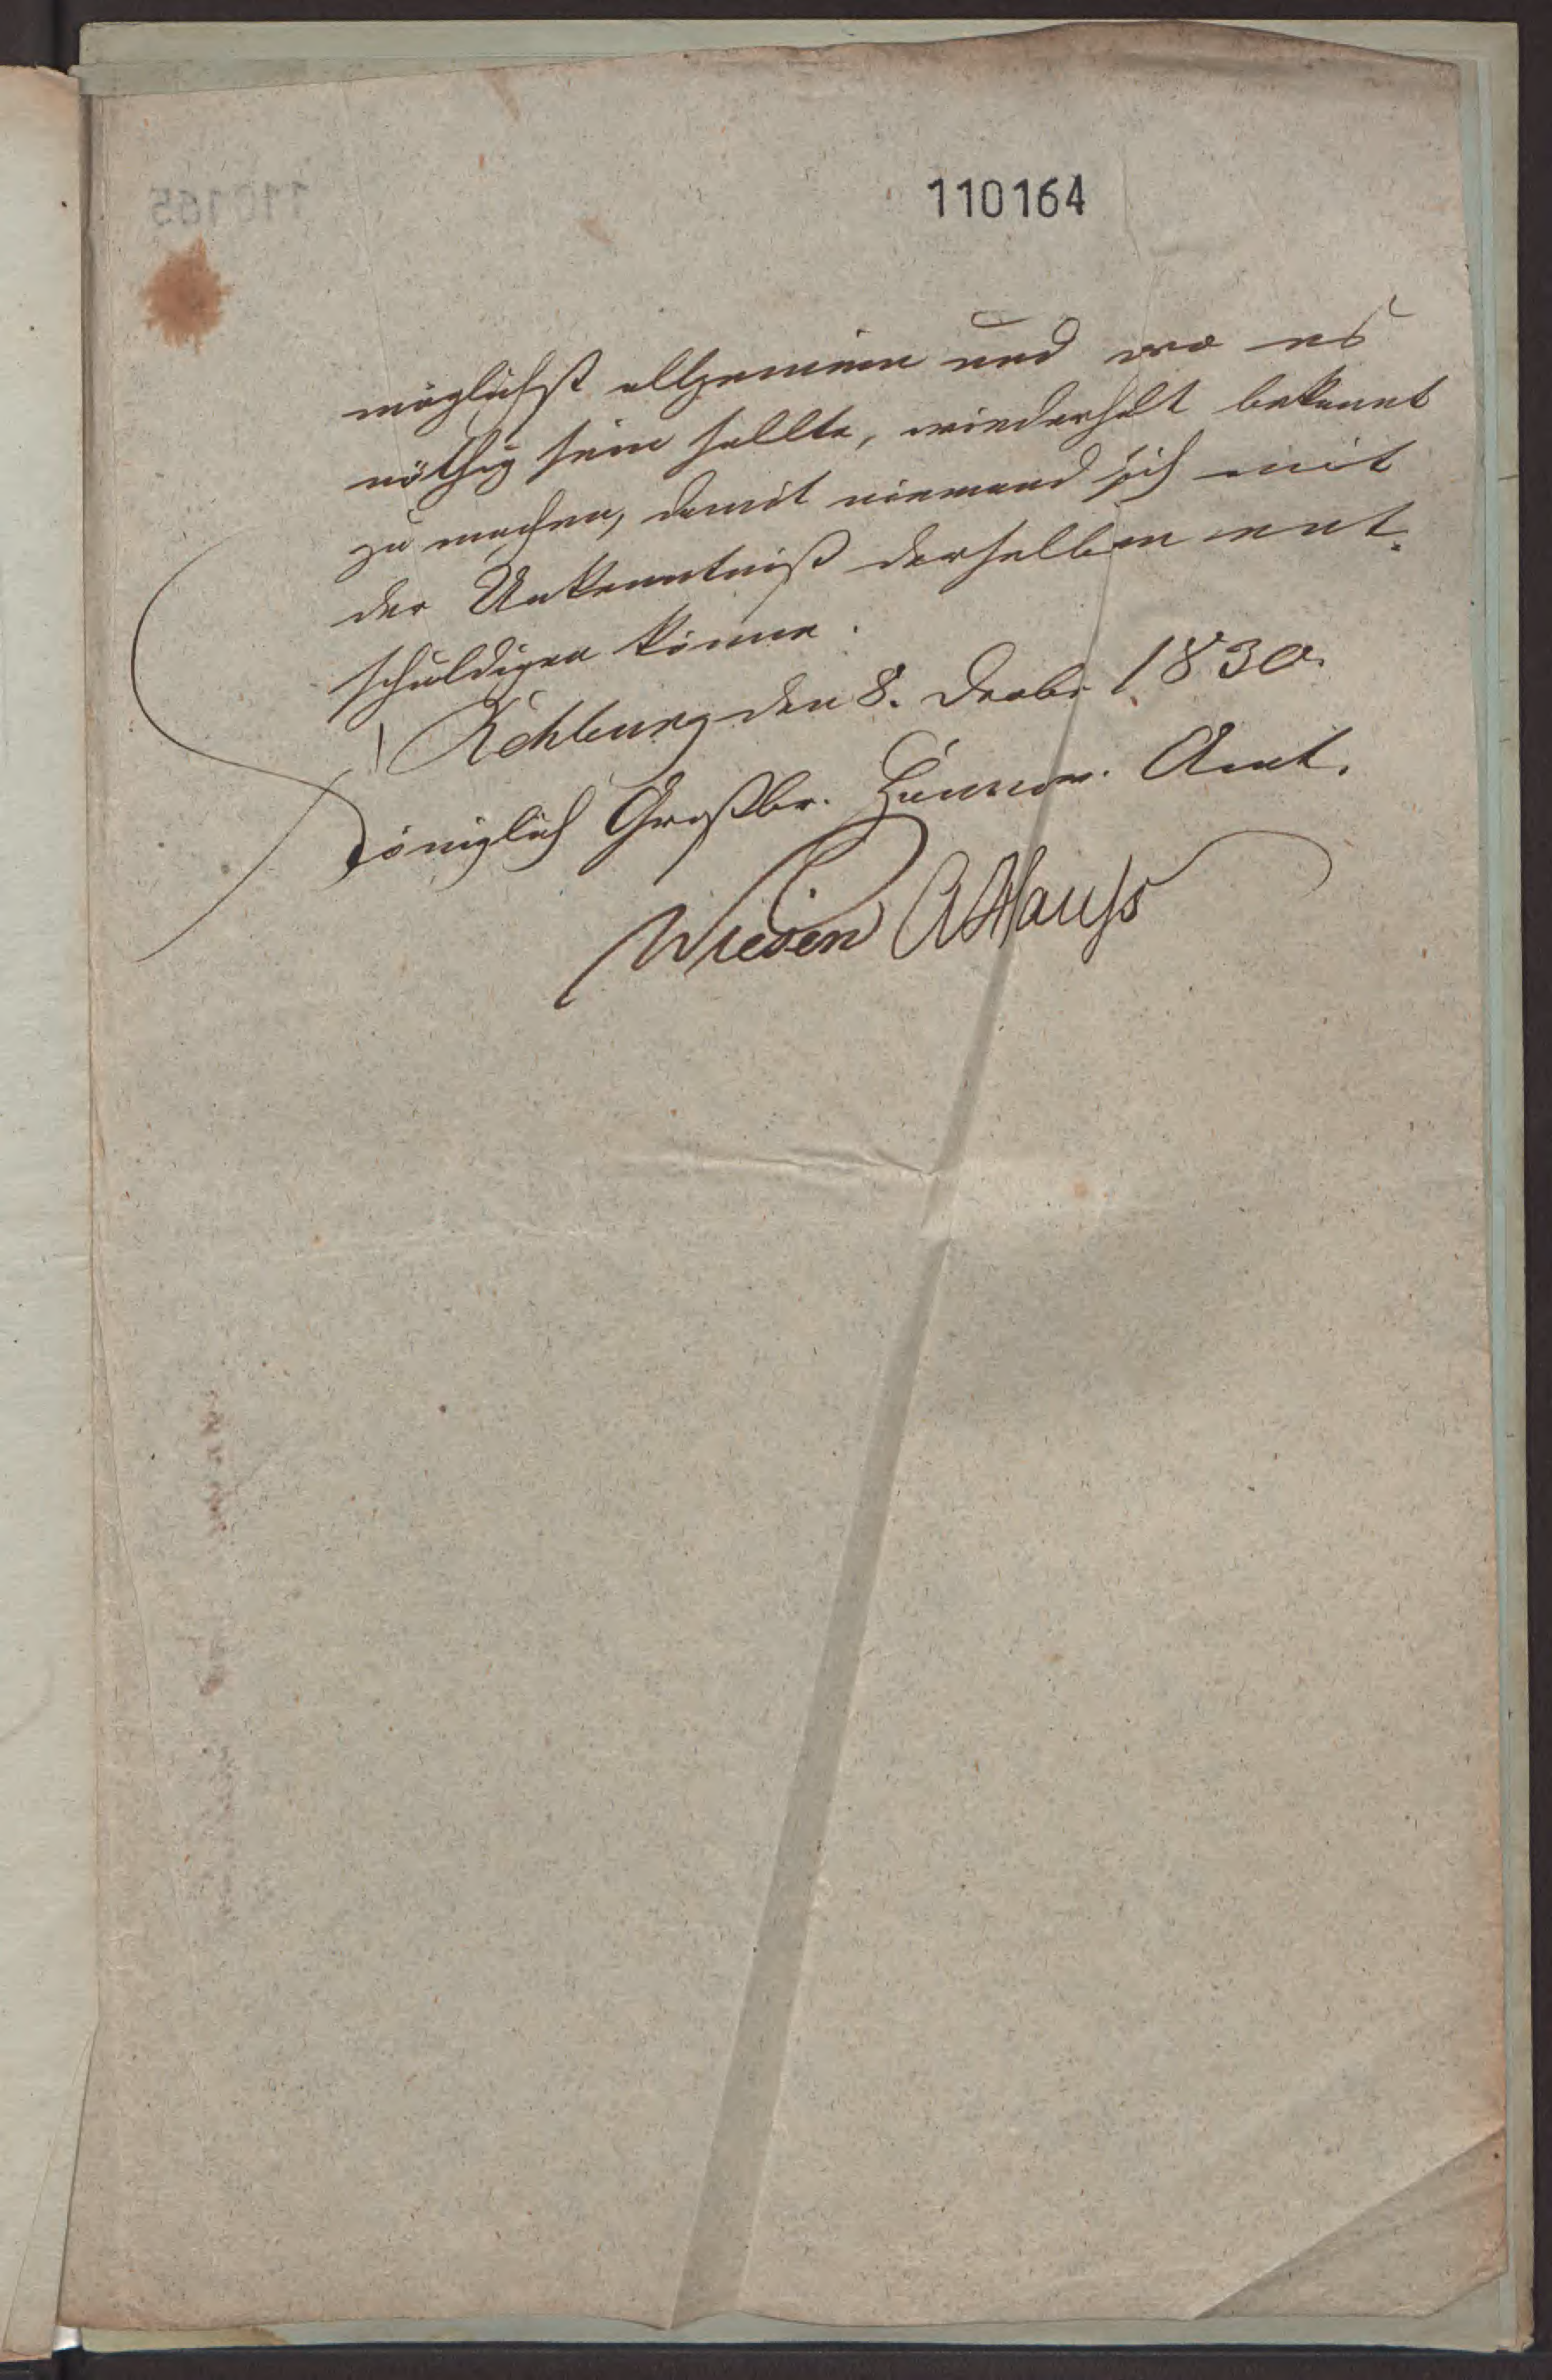 110164
möglichst allgemein und wo es
nöthig sein sollte, wiederholt bekannt
zu machen, damit niemand sich mit
der Unkenntniß derselben ent-
schuldigen könne.
Rehburg den 8. Decbr 1830.
Königlich Großbr. Hannov. Amt.